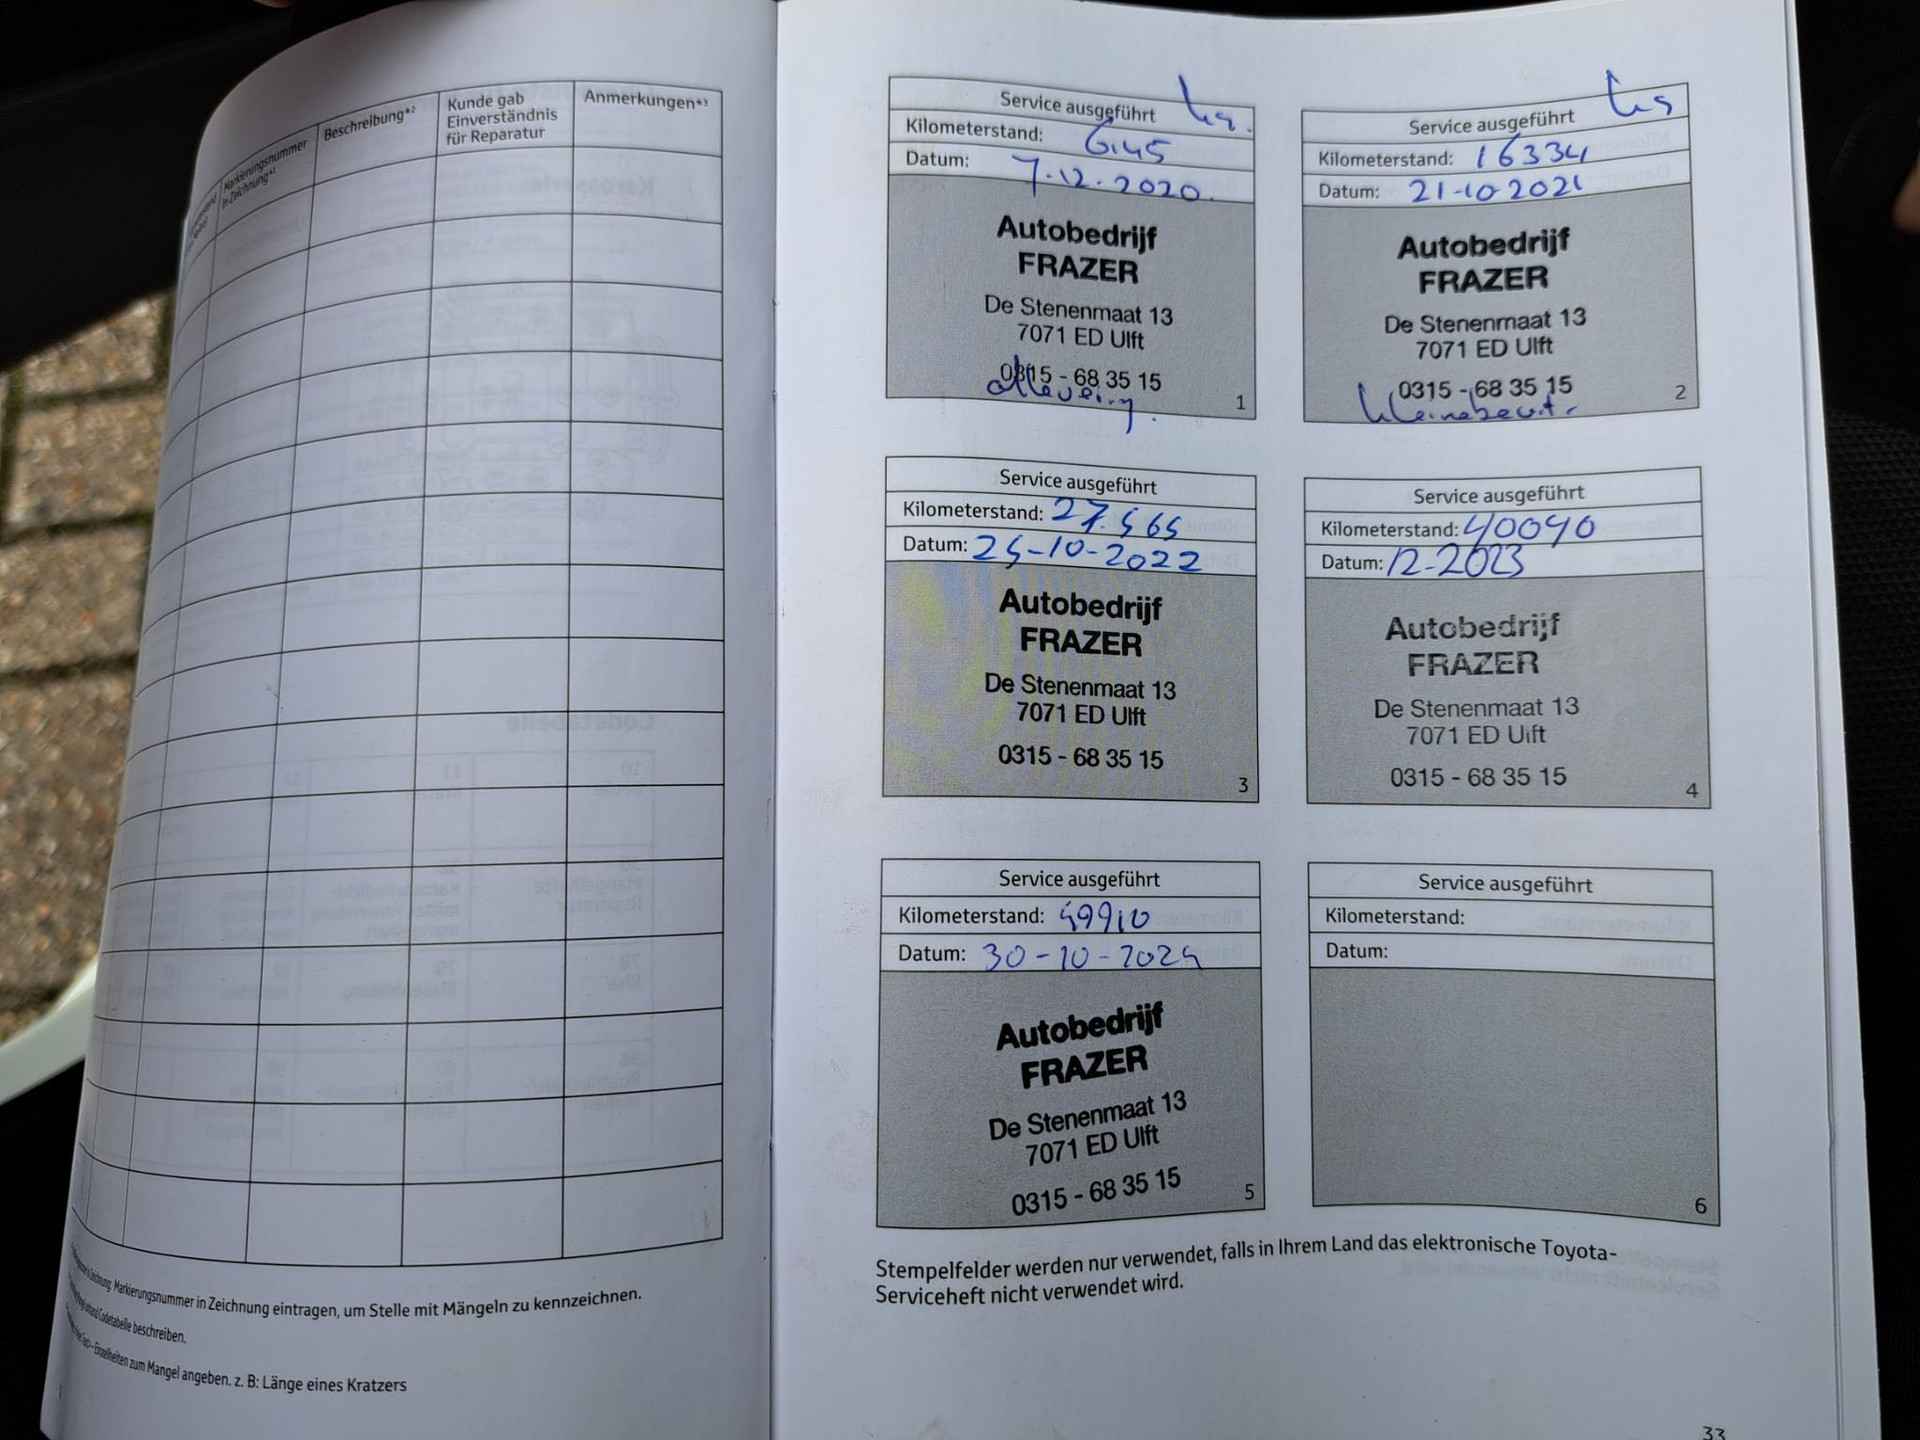 Markierungsnummer
in Zeichnung*¹
Beschreibung*²
Kunde gab
Einverständnis
für Reparatur
Anmerkungen*³
Markierungsnummer in Zeichnung eintragen, um Stelle mit Mängeln zu kennzeichnen.
Codetabelle beschreiben.
Einzelheiten zum Mangel angeben. z. B: Länge eines Kratzers
Service ausgeführt
Kilometerstand: 6.145
Datum: 7.12.2020.
Autobedrijf
FRAZER
De Stenenmaat 13
7071 ED Ulft
0315 - 68 35 15
aflevering.
1
Service ausgeführt
Kilometerstand: 16334
Datum: 21-10-2021
Autobedrijf
FRAZER
De Stenenmaat 13
7071 ED Ulft
0315 - 68 35 15
kleinebeurt.
2
Service ausgeführt
Kilometerstand: 27.565
Datum: 25-10-2022
Autobedrijf
FRAZER
De Stenenmaat 13
7071 ED Ulft
0315 - 68 35 15
3
Service ausgeführt
Kilometerstand: 40040
Datum: 12-2023
Autobedrijf
FRAZER
De Stenenmaat 13
7071 ED Ulft
0315 - 68 35 15
4
Service ausgeführt
Kilometerstand: 49910
Datum: 30-10-2024
Autobedrijf
FRAZER
De Stenenmaat 13
7071 ED Ulft
0315 - 68 35 15
5
Service ausgeführt
Kilometerstand:
Datum:
6
Stempelfelder werden nur verwendet, falls in Ihrem Land das elektronische Toyota-
Serviceheft nicht verwendet wird.
33